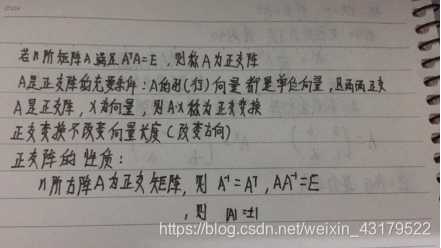 若n阶矩阵A满足AᵀA=E，则称A为正交阵
A是正交阵的充要条件：A的列(行)向量都是单位向量，且两两正交
A是正交阵，X为向量，则A·X称为正交变换
正交变换不改变向量长度(改变方向)
正交阵的性质：
n阶方阵A为正交矩阵，则 A⁻¹=Aᵀ，AA⁻¹=E
，则 |A|=±1
https://blog.csdn.net/weixin_43179522